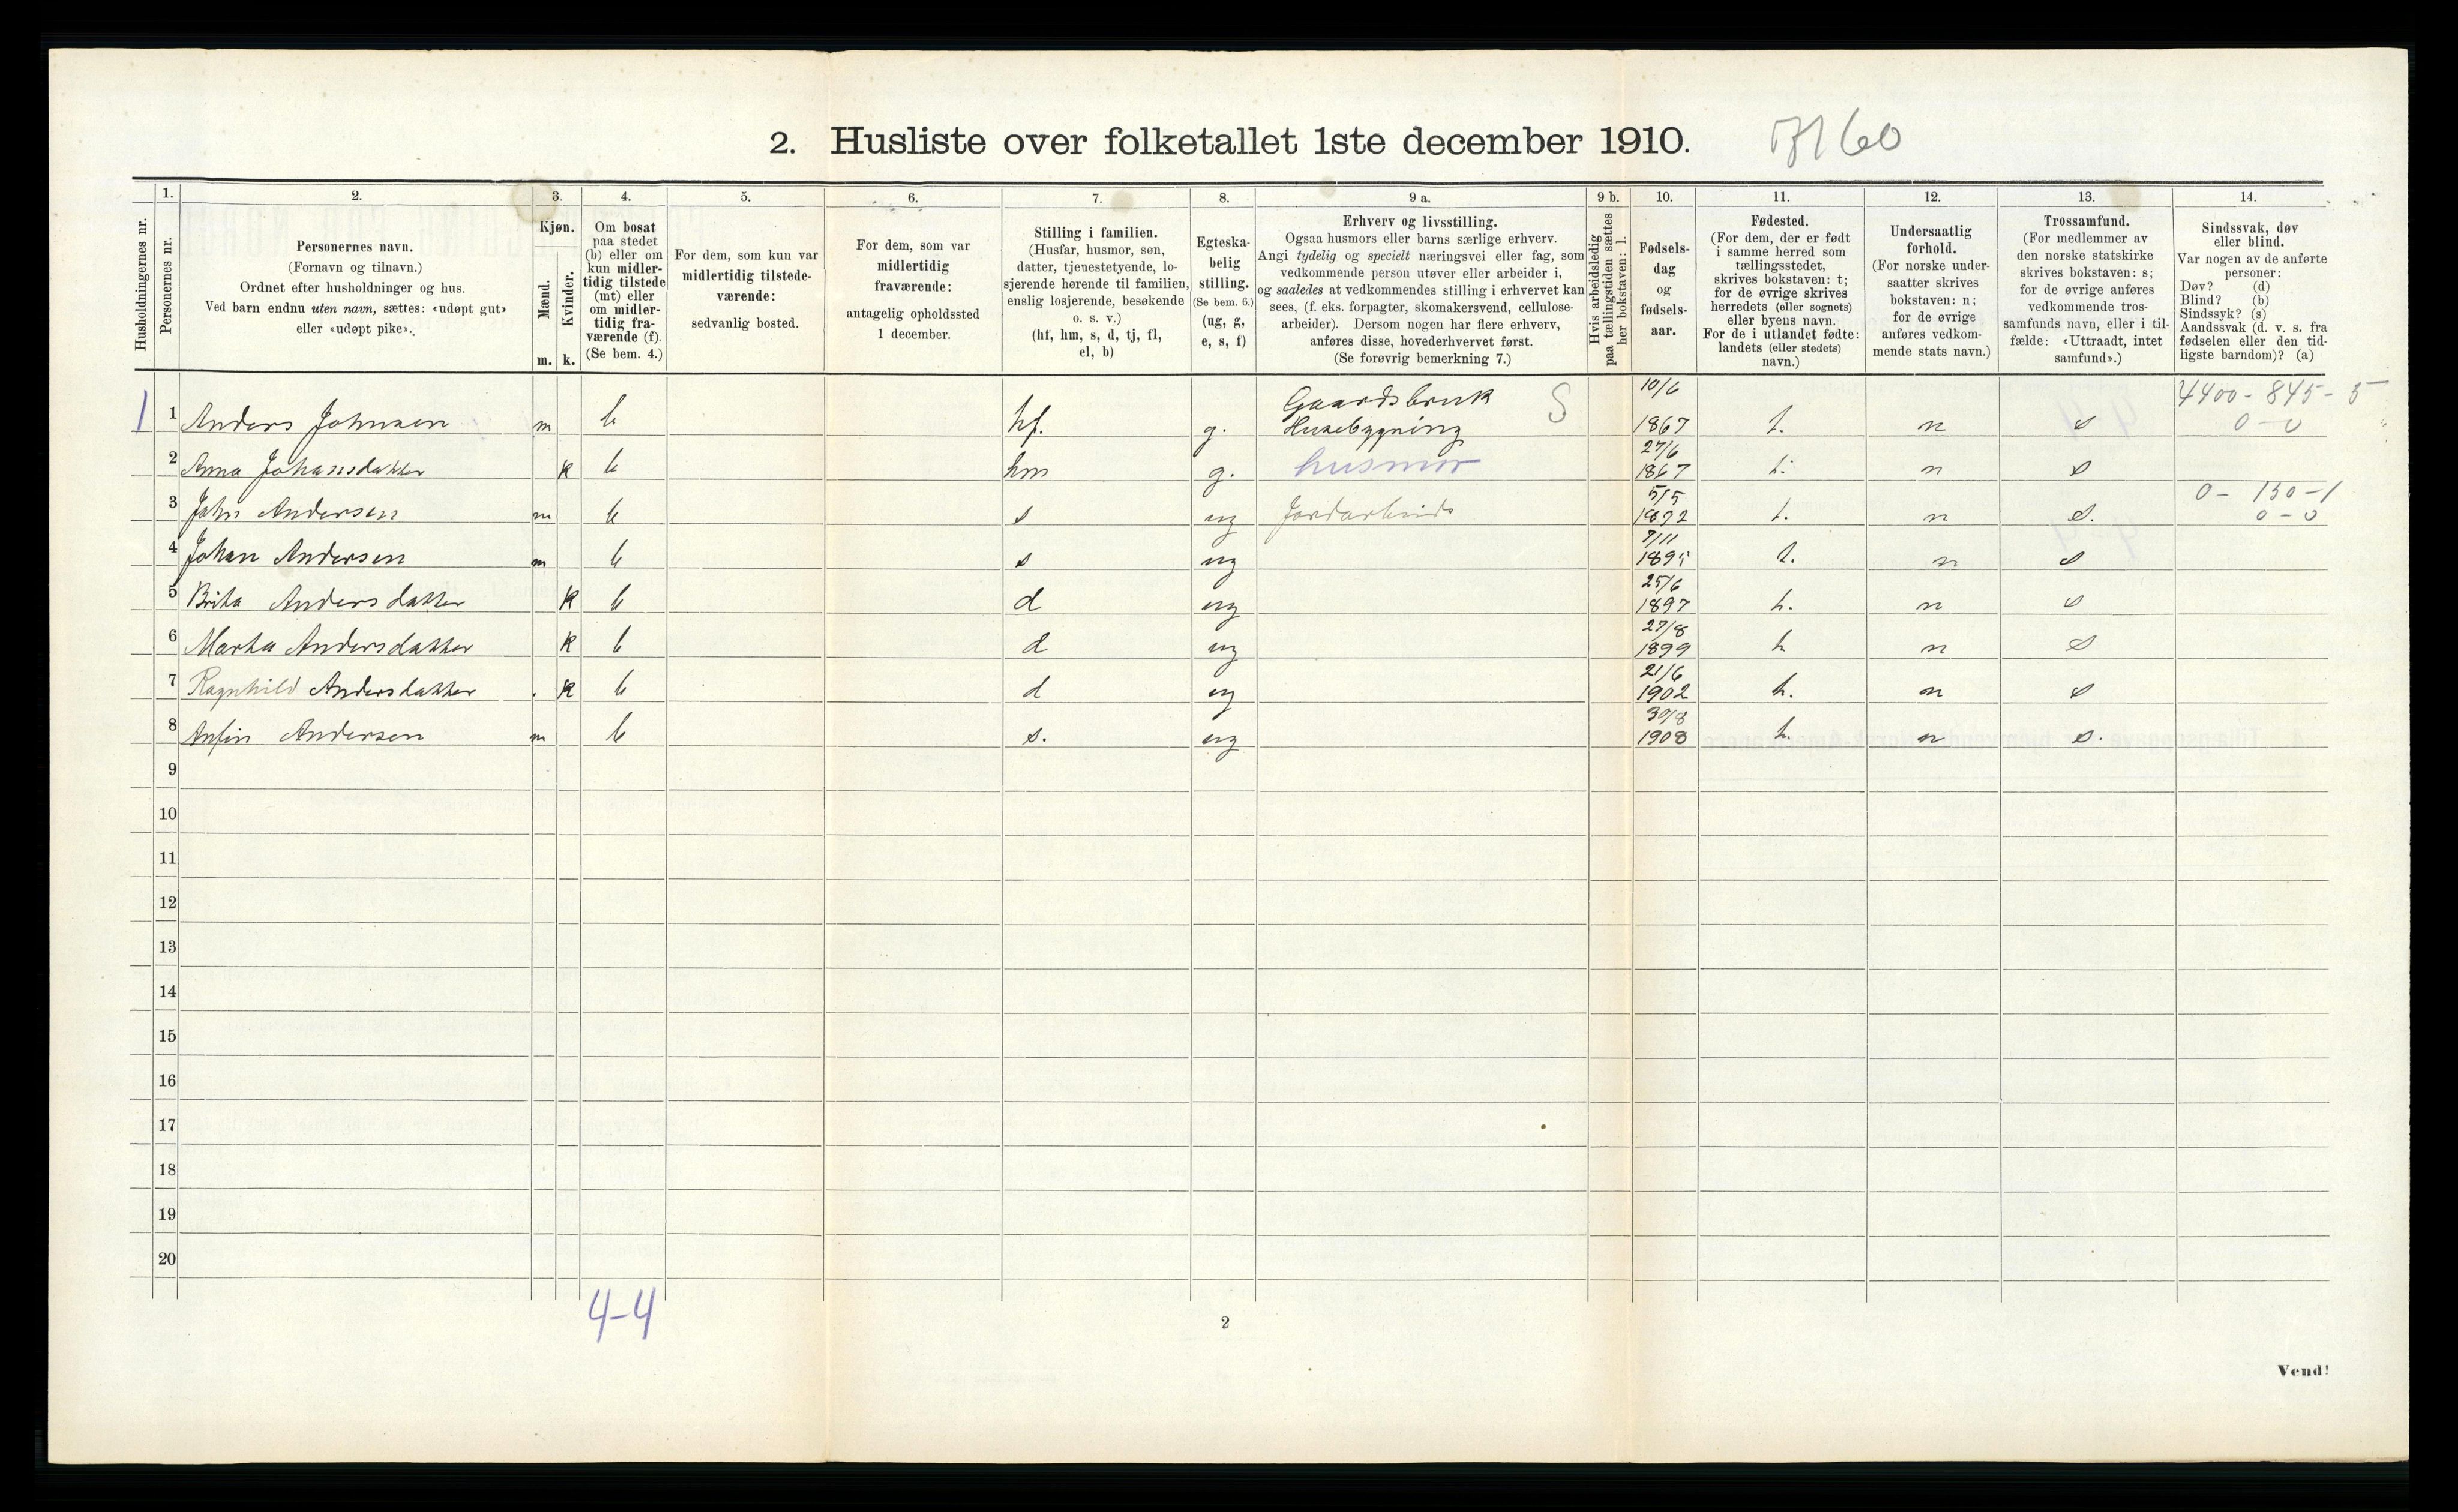 2. Husliste over folketallet 1ste december 1910.
1. 2. 3. 4. 5. 6. 7. 8. 9 a. 9 b. 10. 11. 12. 13. 14.
Husholdningernes nr.
Personernes nr.
Personernes navn.
(Fornavn og tilnavn.)
Ordnet efter husholdninger og hus.
Ved barn endnu uten navn, sættes: «udøpt gut»
eller «udøpt pike».
Kjøn.
Mænd.
Kvinder.
m. k.
Om bosat
paa stedet
(b) eller om
kun midler-
tidig tilstede
(mt) eller
om midler-
tidig fra-
værende (f).
(Se bem. 4.)
For dem, som kun var
midlertidig tilstede-
værende:
sedvanlig bosted.
For dem, som var
midlertidig
fraværende:
antagelig opholdssted
1 december.
Stilling i familien.
(Husfar, husmor, søn,
datter, tjenestetyende, lo-
sjerende hørende til familien,
enslig losjerende, besøkende
o. s. v.)
(hf, hm, s, d, tj, fl,
el, b)
Egteska-
belig
stilling.
(Se bem. 6.)
(ug, g,
e, s, f)
Erhverv og livsstilling.
Ogsaa husmors eller barns særlige erhverv.
Angi tydelig og specielt næringsvei eller fag, som
vedkommende person utøver eller arbeider i,
og saaledes at vedkommendes stilling i erhvervet kan
sees, (f. eks. forpagter, skomakersvend, cellulose-
arbeider). Dersom nogen har flere erhverv,
anføres disse, hovederhvervet først.
(Se forøvrig bemerkning 7.)
Hvis arbeidsledig
paa tællingstiden sættes
her bokstaven: l.
Fødsels-
dag
og
fødsels-
aar.
Fødested.
(For dem, der er født
i samme herred som
tællingsstedet,
skrives bokstaven: t;
for de øvrige skrives
herredets (eller sognets)
eller byens navn.
For de i utlandet fødte:
landets (eller stedets)
navn.)
Undersaatlig
forhold.
(For norske under-
saatter skrives
bokstaven: n;
for de øvrige
anføres vedkom-
mende stats navn.)
Trossamfund.
(For medlemmer av
den norske statskirke
skrives bokstaven: s;
for de øvrige anføres
vedkommende tros-
samfunds navn, eller i til-
fælde: «Uttraadt, intet
samfund».)
Sindssvak, døv
eller blind.
Var nogen av de anførte
personer:
Døv? (d)
Blind? (b)
Sindssyk? (s)
Aandssvak (d. v. s. fra
fødselen eller den tid-
ligste barndom)? (a)
Gaardsbruk S 10/6 4400-845-5
1 1 Anders Johnsen m b hf. g. Husebygning 1867 t. n s 0-0
27/6
2 Anna Johansdatter k b hm g. husmor 1867 t. n s
5/5 0-130-1
3 John Andersen m b s ug Jordarbeide 1892 t. n s. 0-0
7/11
4 Johan Andersen m b s ug 1895 t. n s
25/6
5 Brita Andersdatter k b d ug 1897 t. n s
27/8
6 Marta Andersdatter k b d ug 1899 t n s
21/6
7 Ragnhild Andersdatter k b d ug 1902 t. n s
30/8
8 Anfin Andersen m b s. ug 1908 t. n s.
9
10
11
12
13
14
15
16
17
18
19
20
4-4
2
Vend!